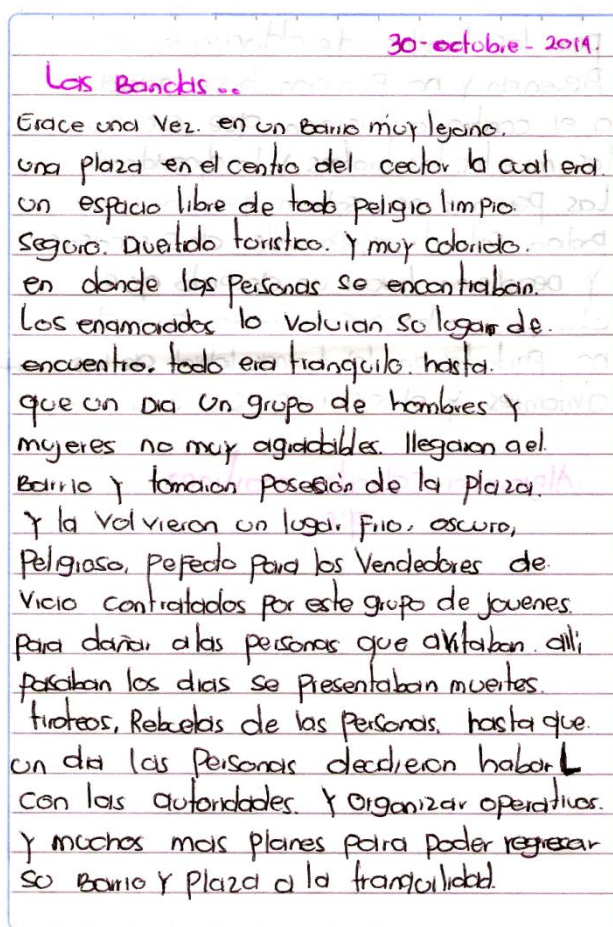 30-octubre-2014.
Las Bandas..
Erace una Vez. en un Barrio muy lejano.
una plaza en el centro del cector la cual era.
un espacio libre de todo peligro limpio.
seguro. Divertido toristico. Y muy colorido.
en donde las Personas se encontraban.
Los enamorados lo volvian su lugar de.
encuentro. todo era tranquilo. hasta.
que un Dia un grupo de hombres y
mujeres no muy agradables. llegaron ael.
Barrio y tomaron Posesión de la Plaza.
Y la volvieron un lugar. Frio. oscuro,
Peligroso, pefecto para los Vendedores de.
Vicio contratados por este grupo de jovenes.
para dañar a las personas que avitaban. alli;
pasaban los dias se Presentaban muertes.
tiroteos, de las Personas. hasta que.
un dia las Personas decidieron habarL
con las autoridades. Y organizar operativos.
Y muchos mas planes para poder regresar
su Barrio Y Plaza a la tranquilidad.